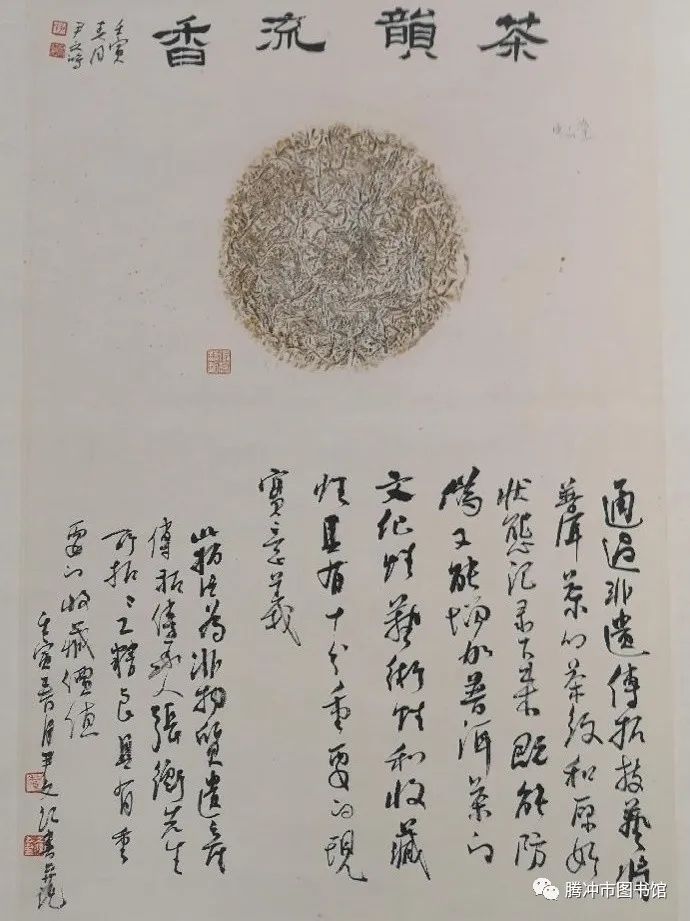 茶韻流香
壬寅
春月
通過非遺傳拓技藝將
普洱茶的茶紋和原始
狀態記录下来既能防
偽又能增加普洱茶的
文化性藝術性和收藏
性具有十分重要的現
實意義
此拓片為非物質遺産
傳拓傳承人張衡先生
所拓拓工精良具有重
要的收藏價值
壬寅春月尹文
腾冲市图书馆